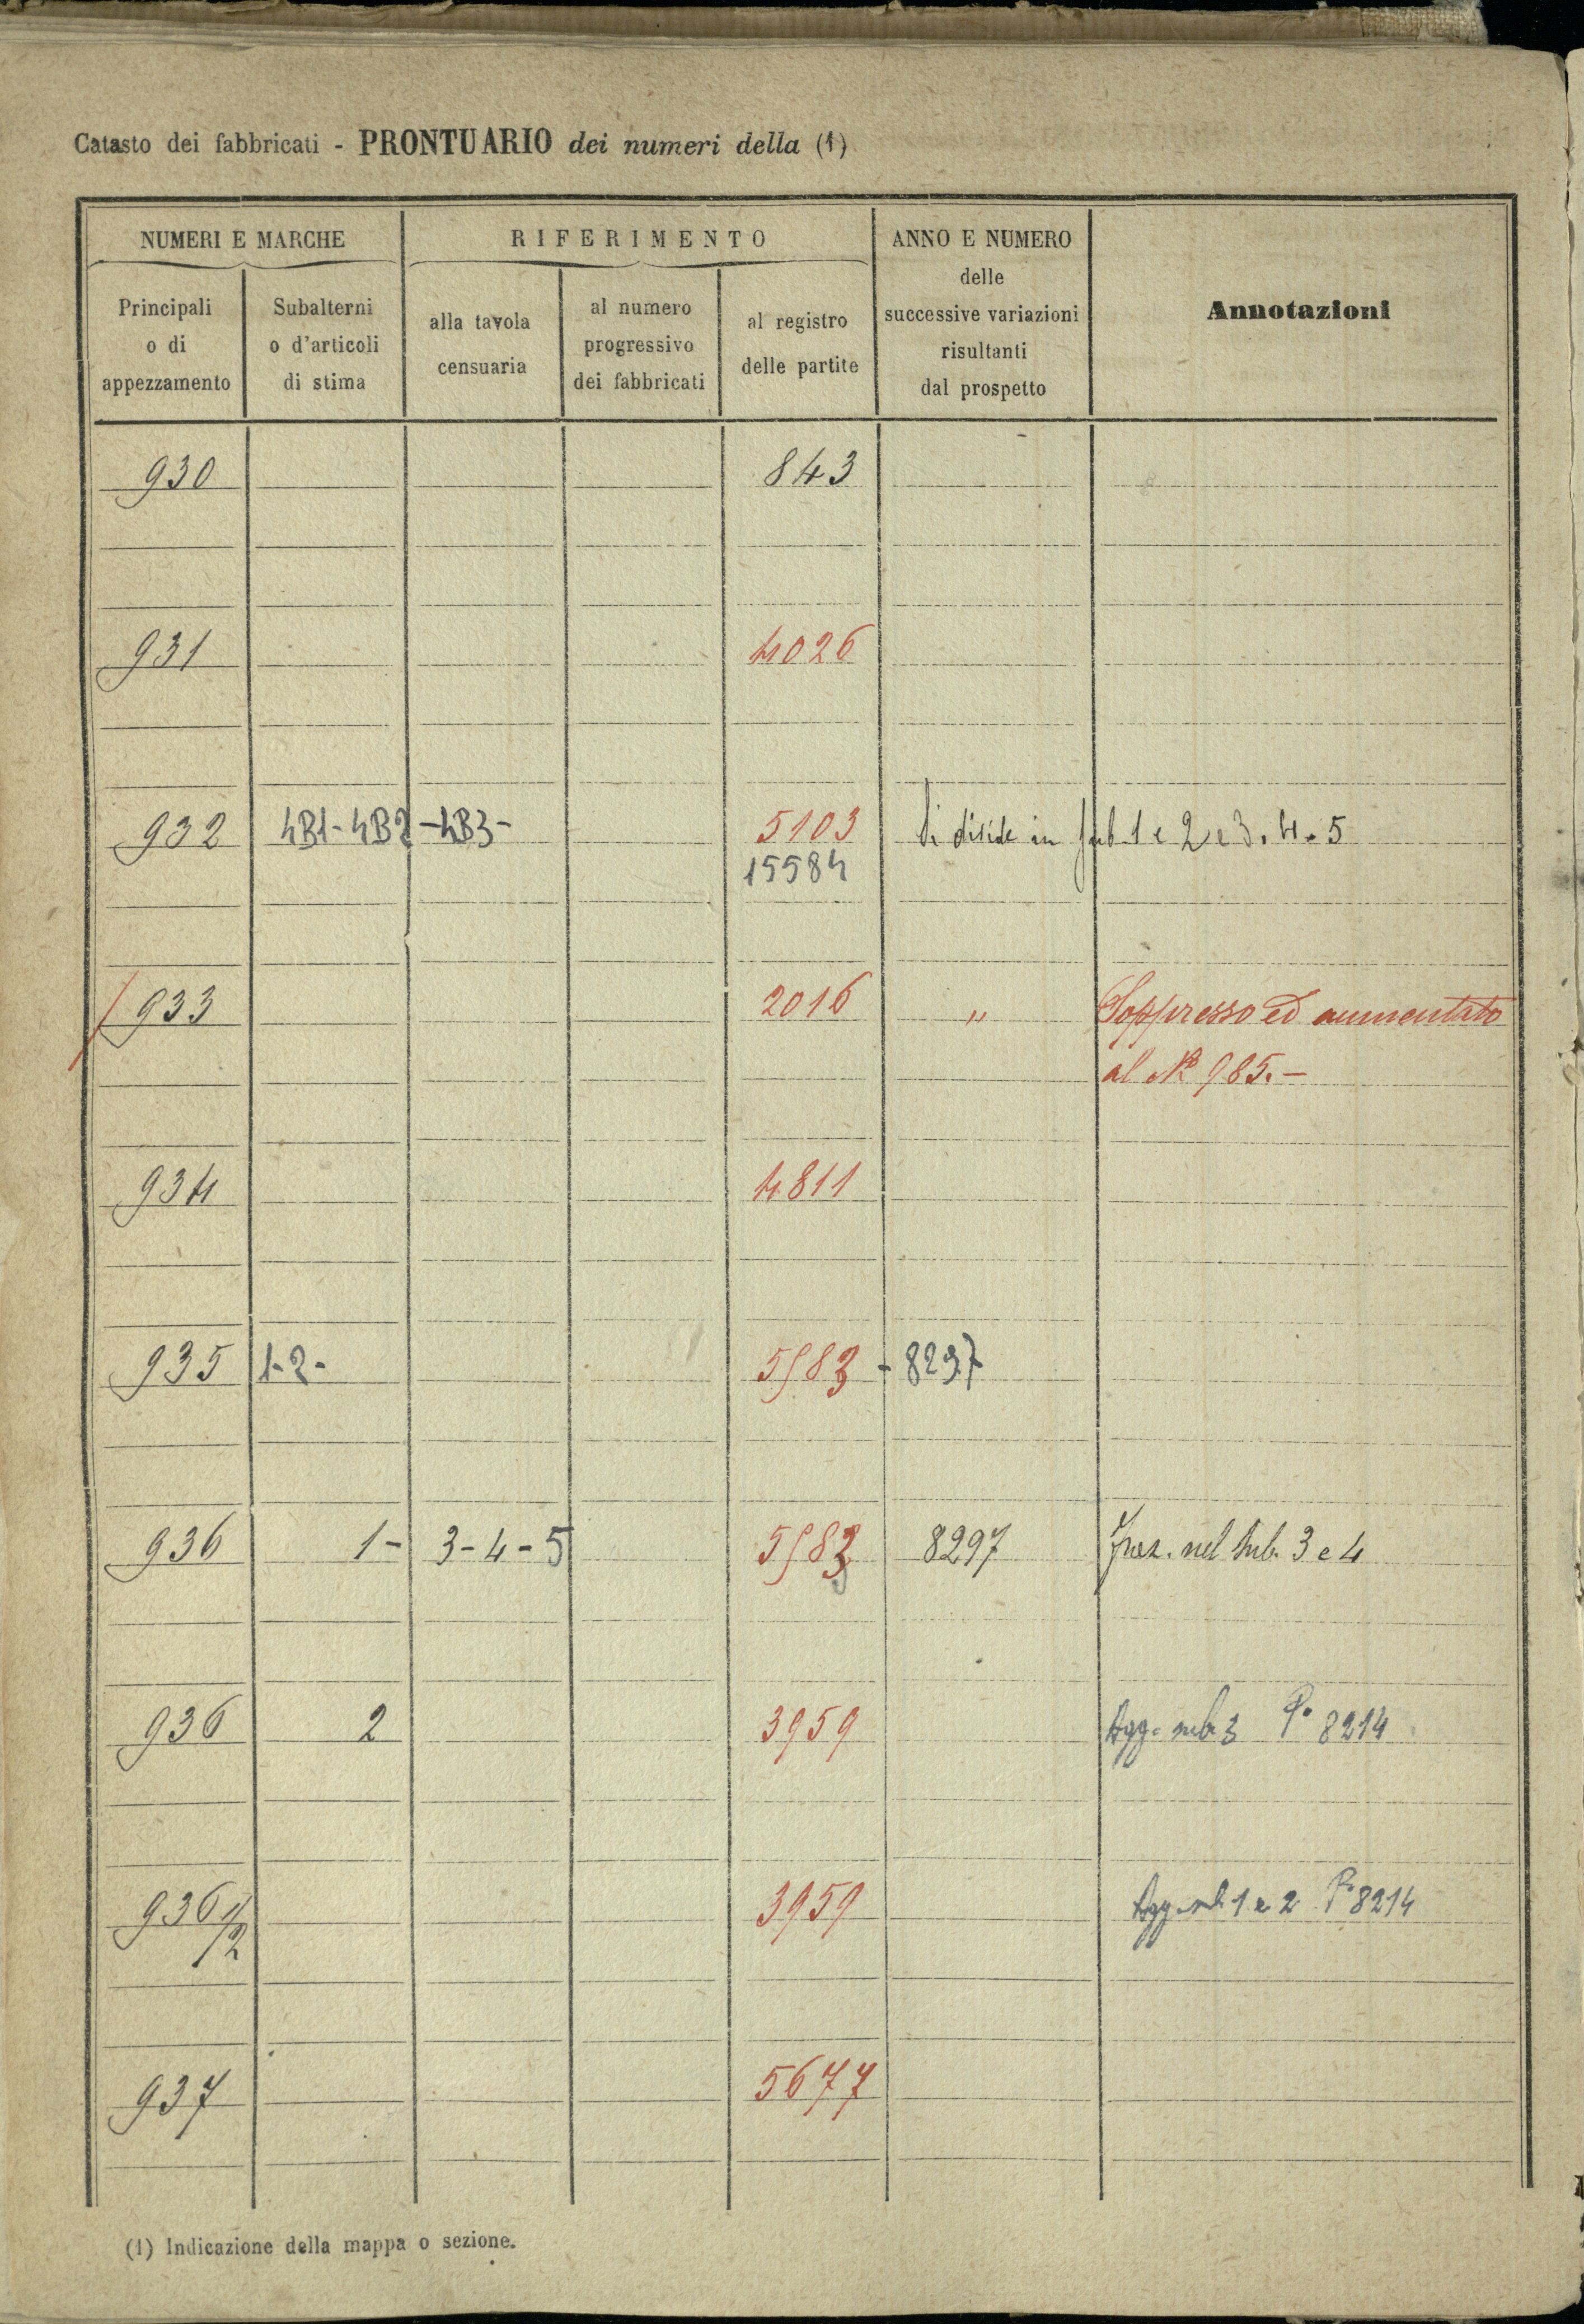 Catasto dei fabbricati - PRONTUARIO dei numeri della (1)
NUMERI E MARCHE
RIFERIMENTO
ANNO E NUMERO
delle
successive variazioni
risultanti
dal prospetto
Annotazioni
Principali
o di
appezzamento
Subalterni
o d'articoli
di stima
alla tavola
censuaria
al numero
progressivo
dei fabbricati
al registro
delle partite
930 843
931 4026
932 4B1-4B2-4B3- 5103 Si divide in sub 1 e 2 e 3. 4. 5
15584
933 2016 " Soppresso ed aumentato
al N° 985.-
934 4811
935 1-2- 5983 - 8297
936 1- 3-4-5 5983 8297 nel sub. 3 e 4
936 2 3959 Agg. sub 3 P. 8214
936 1/2 3959 Agg. sub 1 e 2 P. 8214
937 5677
(1) Indicazione della mappa o sezione.